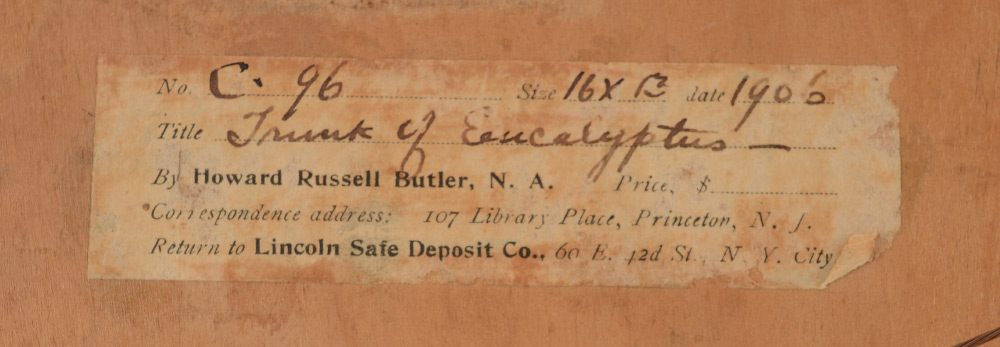 No. C. 96 Size 16 X date 1906
Title Trunk of Eucalyptus —
By Howard Russell Butler, N. A. Price, $
Correspondence address: 107 Library Place, Princeton, N. J.
Return to Lincoln Safe Deposit Co., 60 E. 42d St., N. Y. City